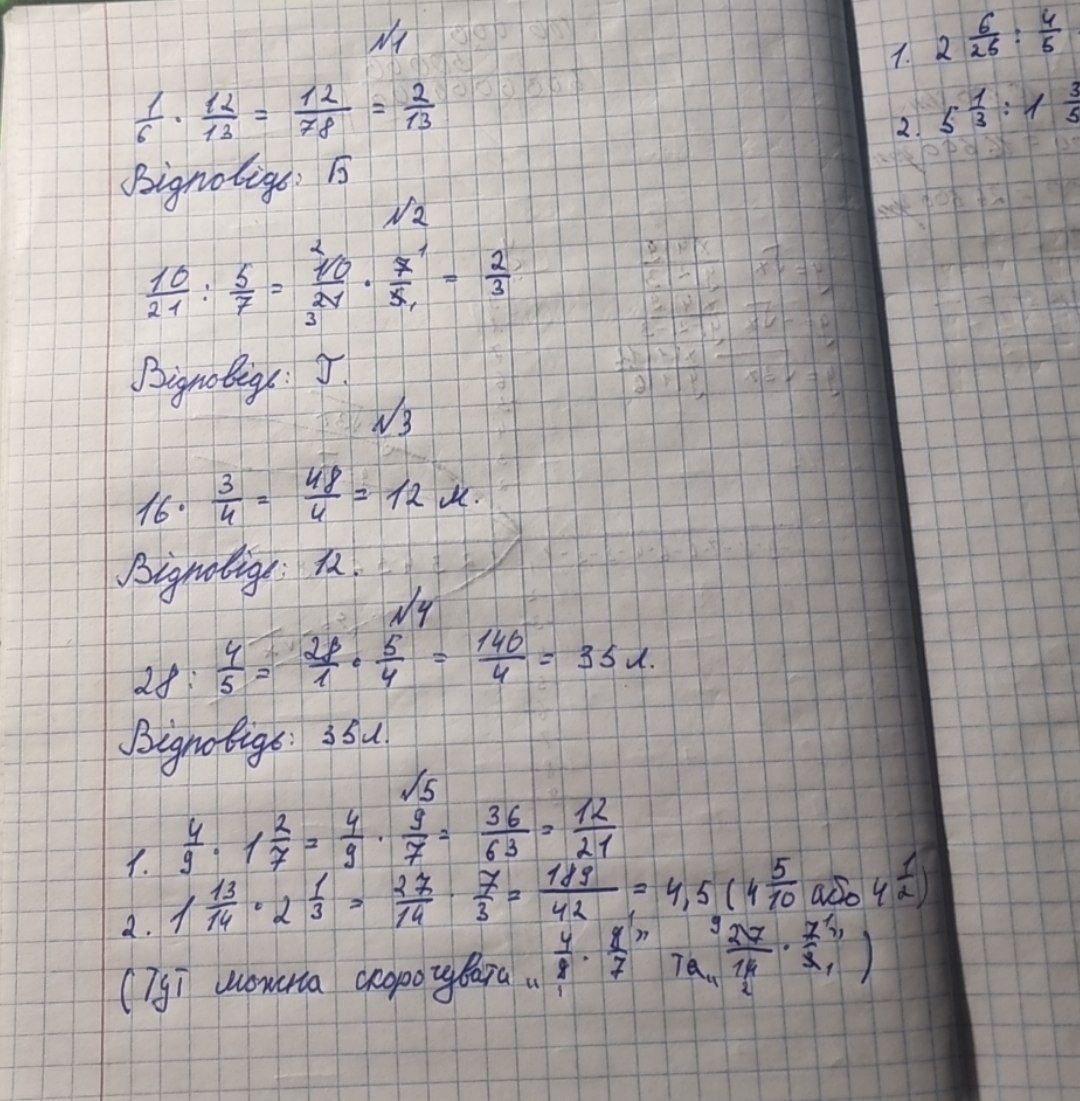 №1
1/6 · 12/13 = 12/78 = 2/13
Відповідь: Б
№2
10/21 : 5/7 = 2 10/21 3 · 7/5 1 1 = 2/3
Відповідь: Г.
№3
16 · 3/4 = 48/4 = 12 м.
Відповідь: 12.
№4
28 : 4/5 = 28/1 · 5/4 = 140/4 = 35 л.
Відповідь: 35 л.
№5
1. 4/9 · 1 2/7 = 4/9 · 9/7 = 36/63 = 12/21
2. 1 13/14 · 2 1/3 = 27/14 · 7/3 = 189/42 = 4,5 (4 5/10 або 4 1/2)
(Тут можна скорочувати „4/9 1 · 9/7 1” та „9 27/14 2 · 7/3 1 1”)
1. 2 6/25 : 4/5
2. 5 1/3 : 1 3/5